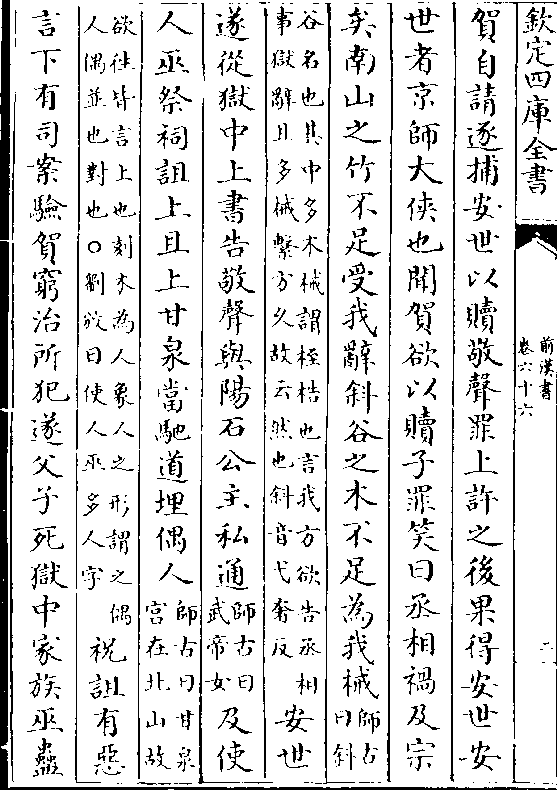 欽定四庫全書
前漢書
卷六十六
二
賀自請逐捕安世以贖敬聲罪上許之後果得安世安
世者京師大俠也聞賀欲以贖子罪笑曰丞相禍及宗
矣南山之竹不足受我辭斜谷之木不足為我械師古
曰斜
谷名也其中多木械謂桎梏也言我方欲告丞相
事獄辭且多械繫方久故云然也斜音弋奢反
安世
遂從獄中上書告敬聲與陽石公主私通師古曰
武帝女
及使
人巫祭祠詛上且上甘泉當馳道埋偶人師古曰甘泉
宮在北山故
欲往皆言上也刻木為人象人之形謂之偶
人偶並也對也○劉攽曰使人巫多人字
祝詛有惡
言下有司案驗賀窮治所犯遂父子死獄中家族巫蠱